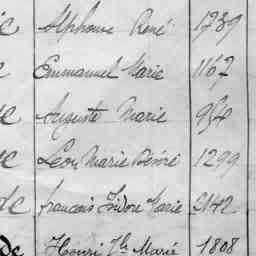 Alphonse René 1739
Emmanuel Marie 1167
Auguste Marie 954
Léon Marie Désiré 1299
de François Isidore Marie 2142
de Henri Jh Marie 1808